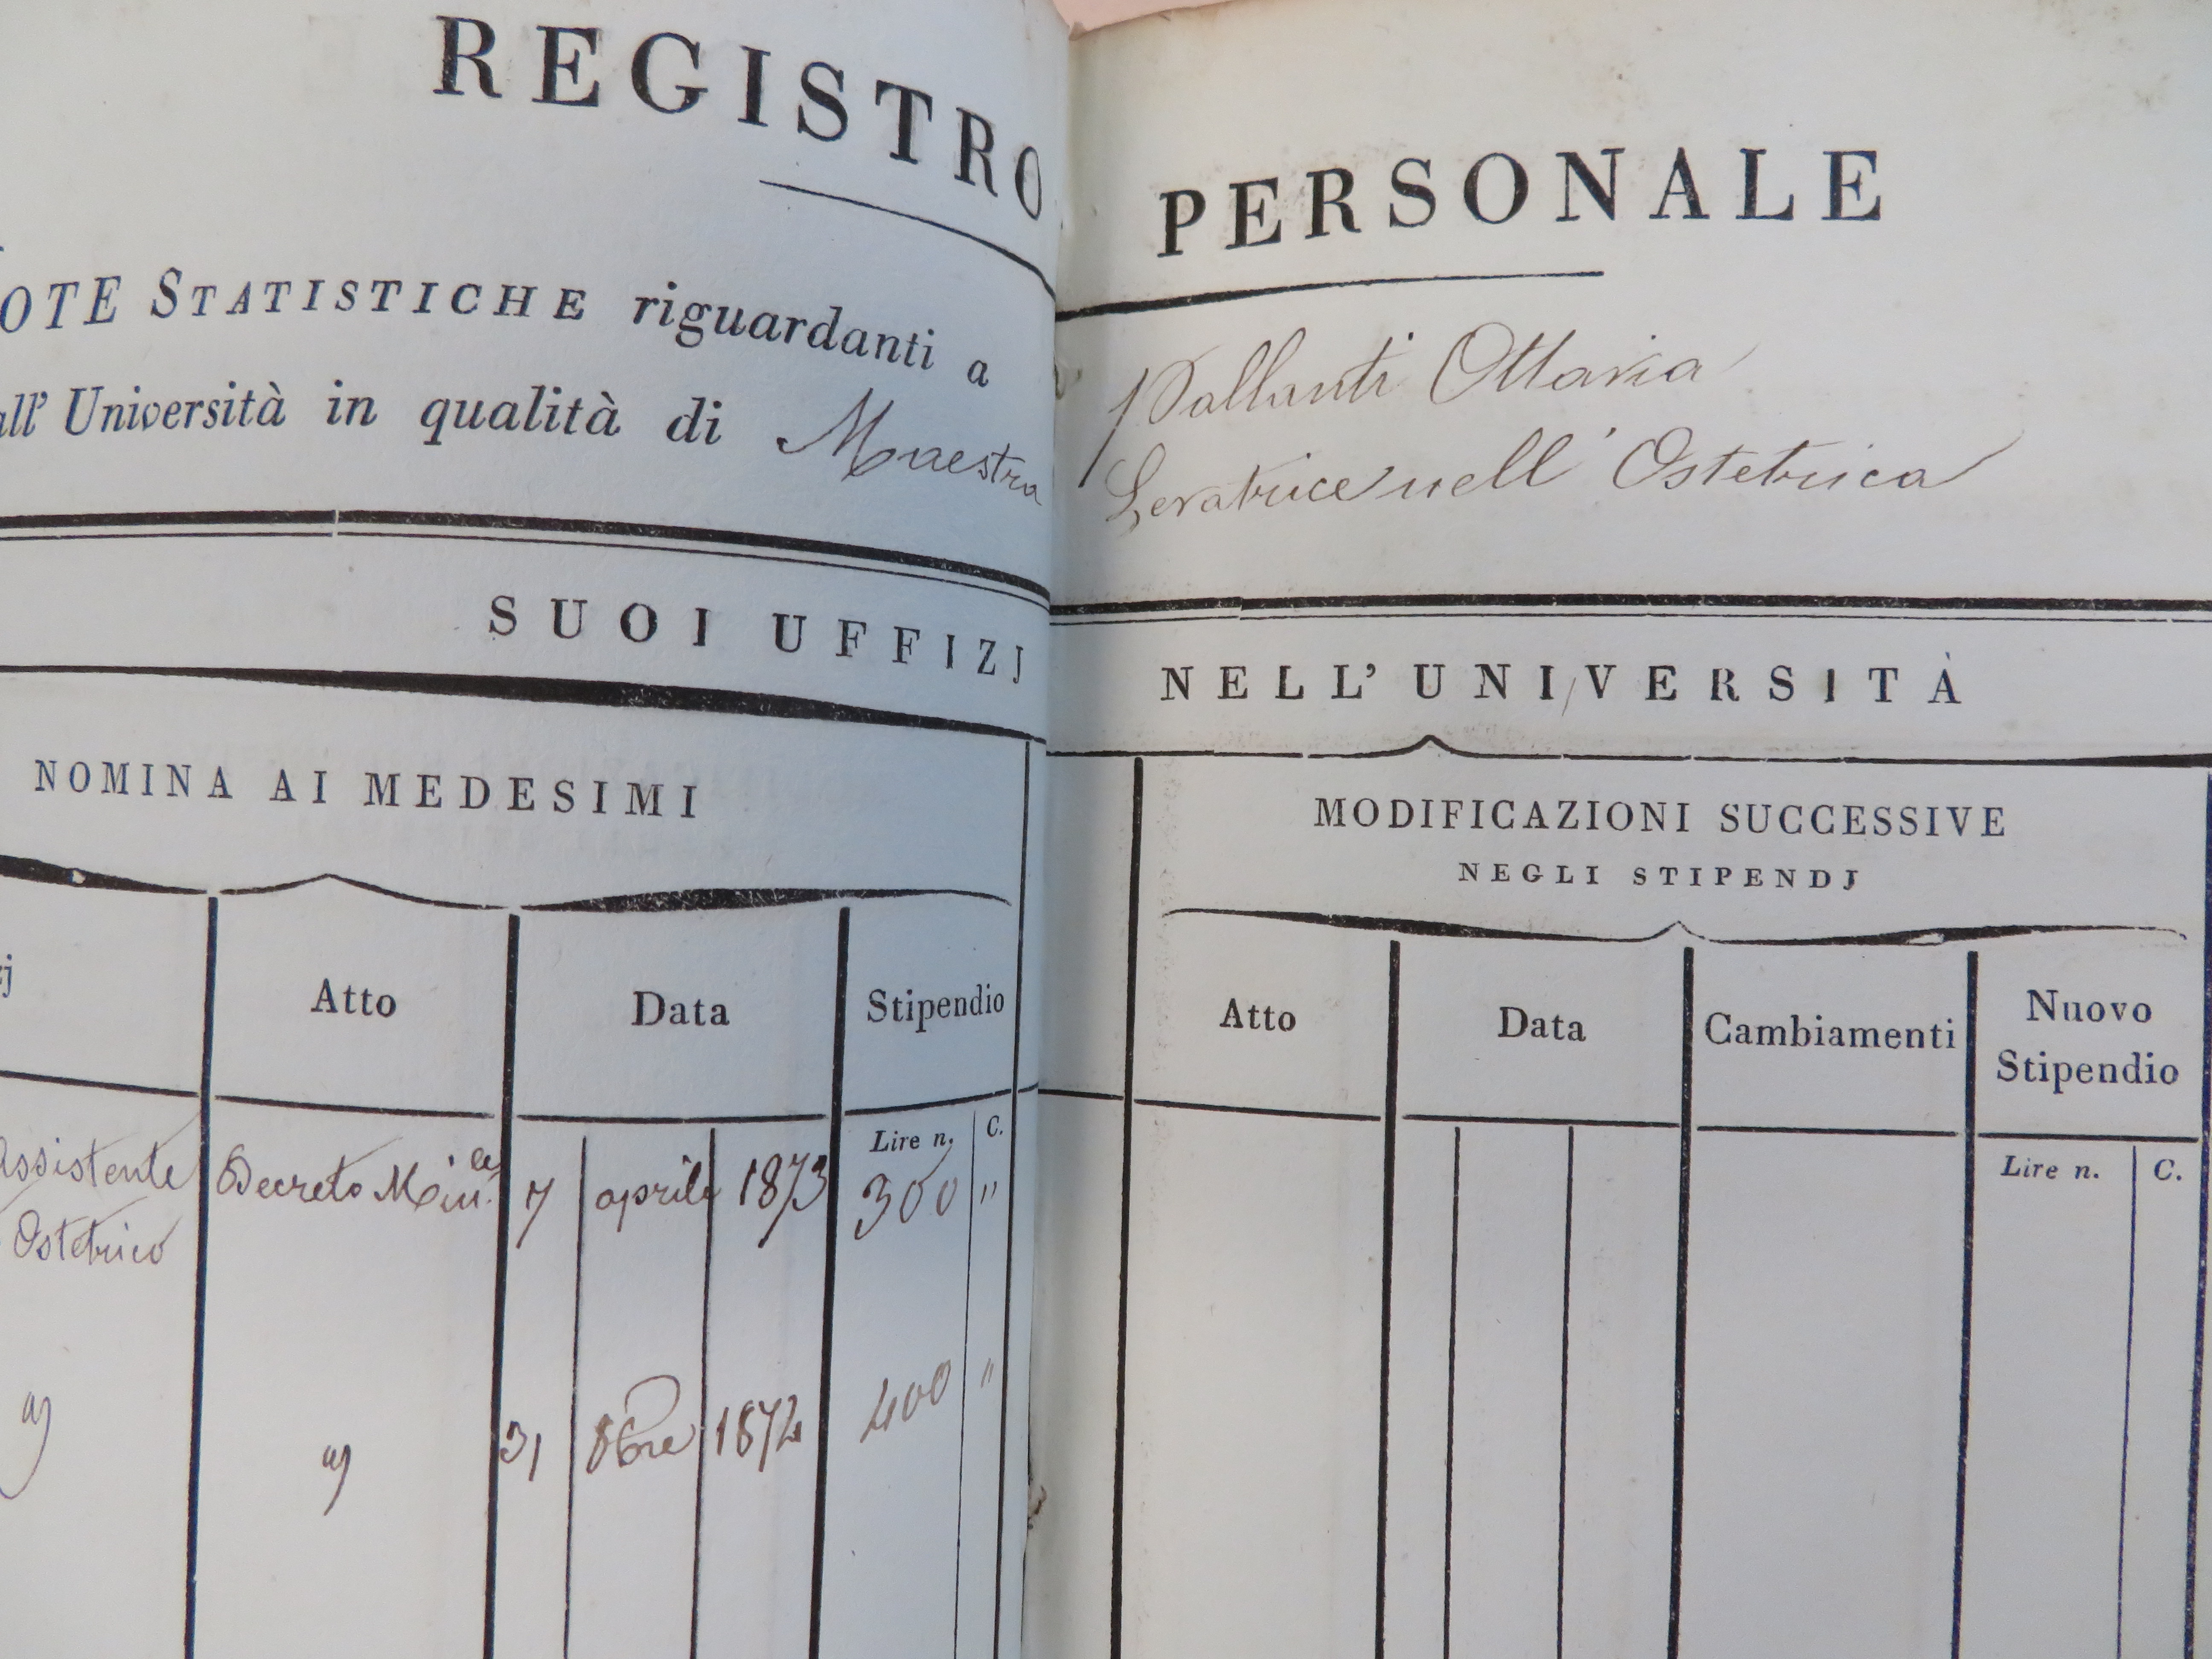 REGISTRO PERSONALE
OTE STATISTICHE riguardanti a Vallanti Ottavia
all' Università in qualità di Maestra Levatrice nell' Ostetrica
SUOI UFFIZJ NELL' UNIVERSITÀ
NOMINA AI MEDESIMI
MODIFICAZIONI SUCCESSIVE
NEGLI STIPENDJ
zj Atto Data Stipendio
Atto Data Cambiamenti Nuovo Stipendio
Lire n. C.
Lire n. C.
Assistente Decreto Min.le 7 aprile 1873 300 "
Ostetrico
31 8bre 1874 400 "